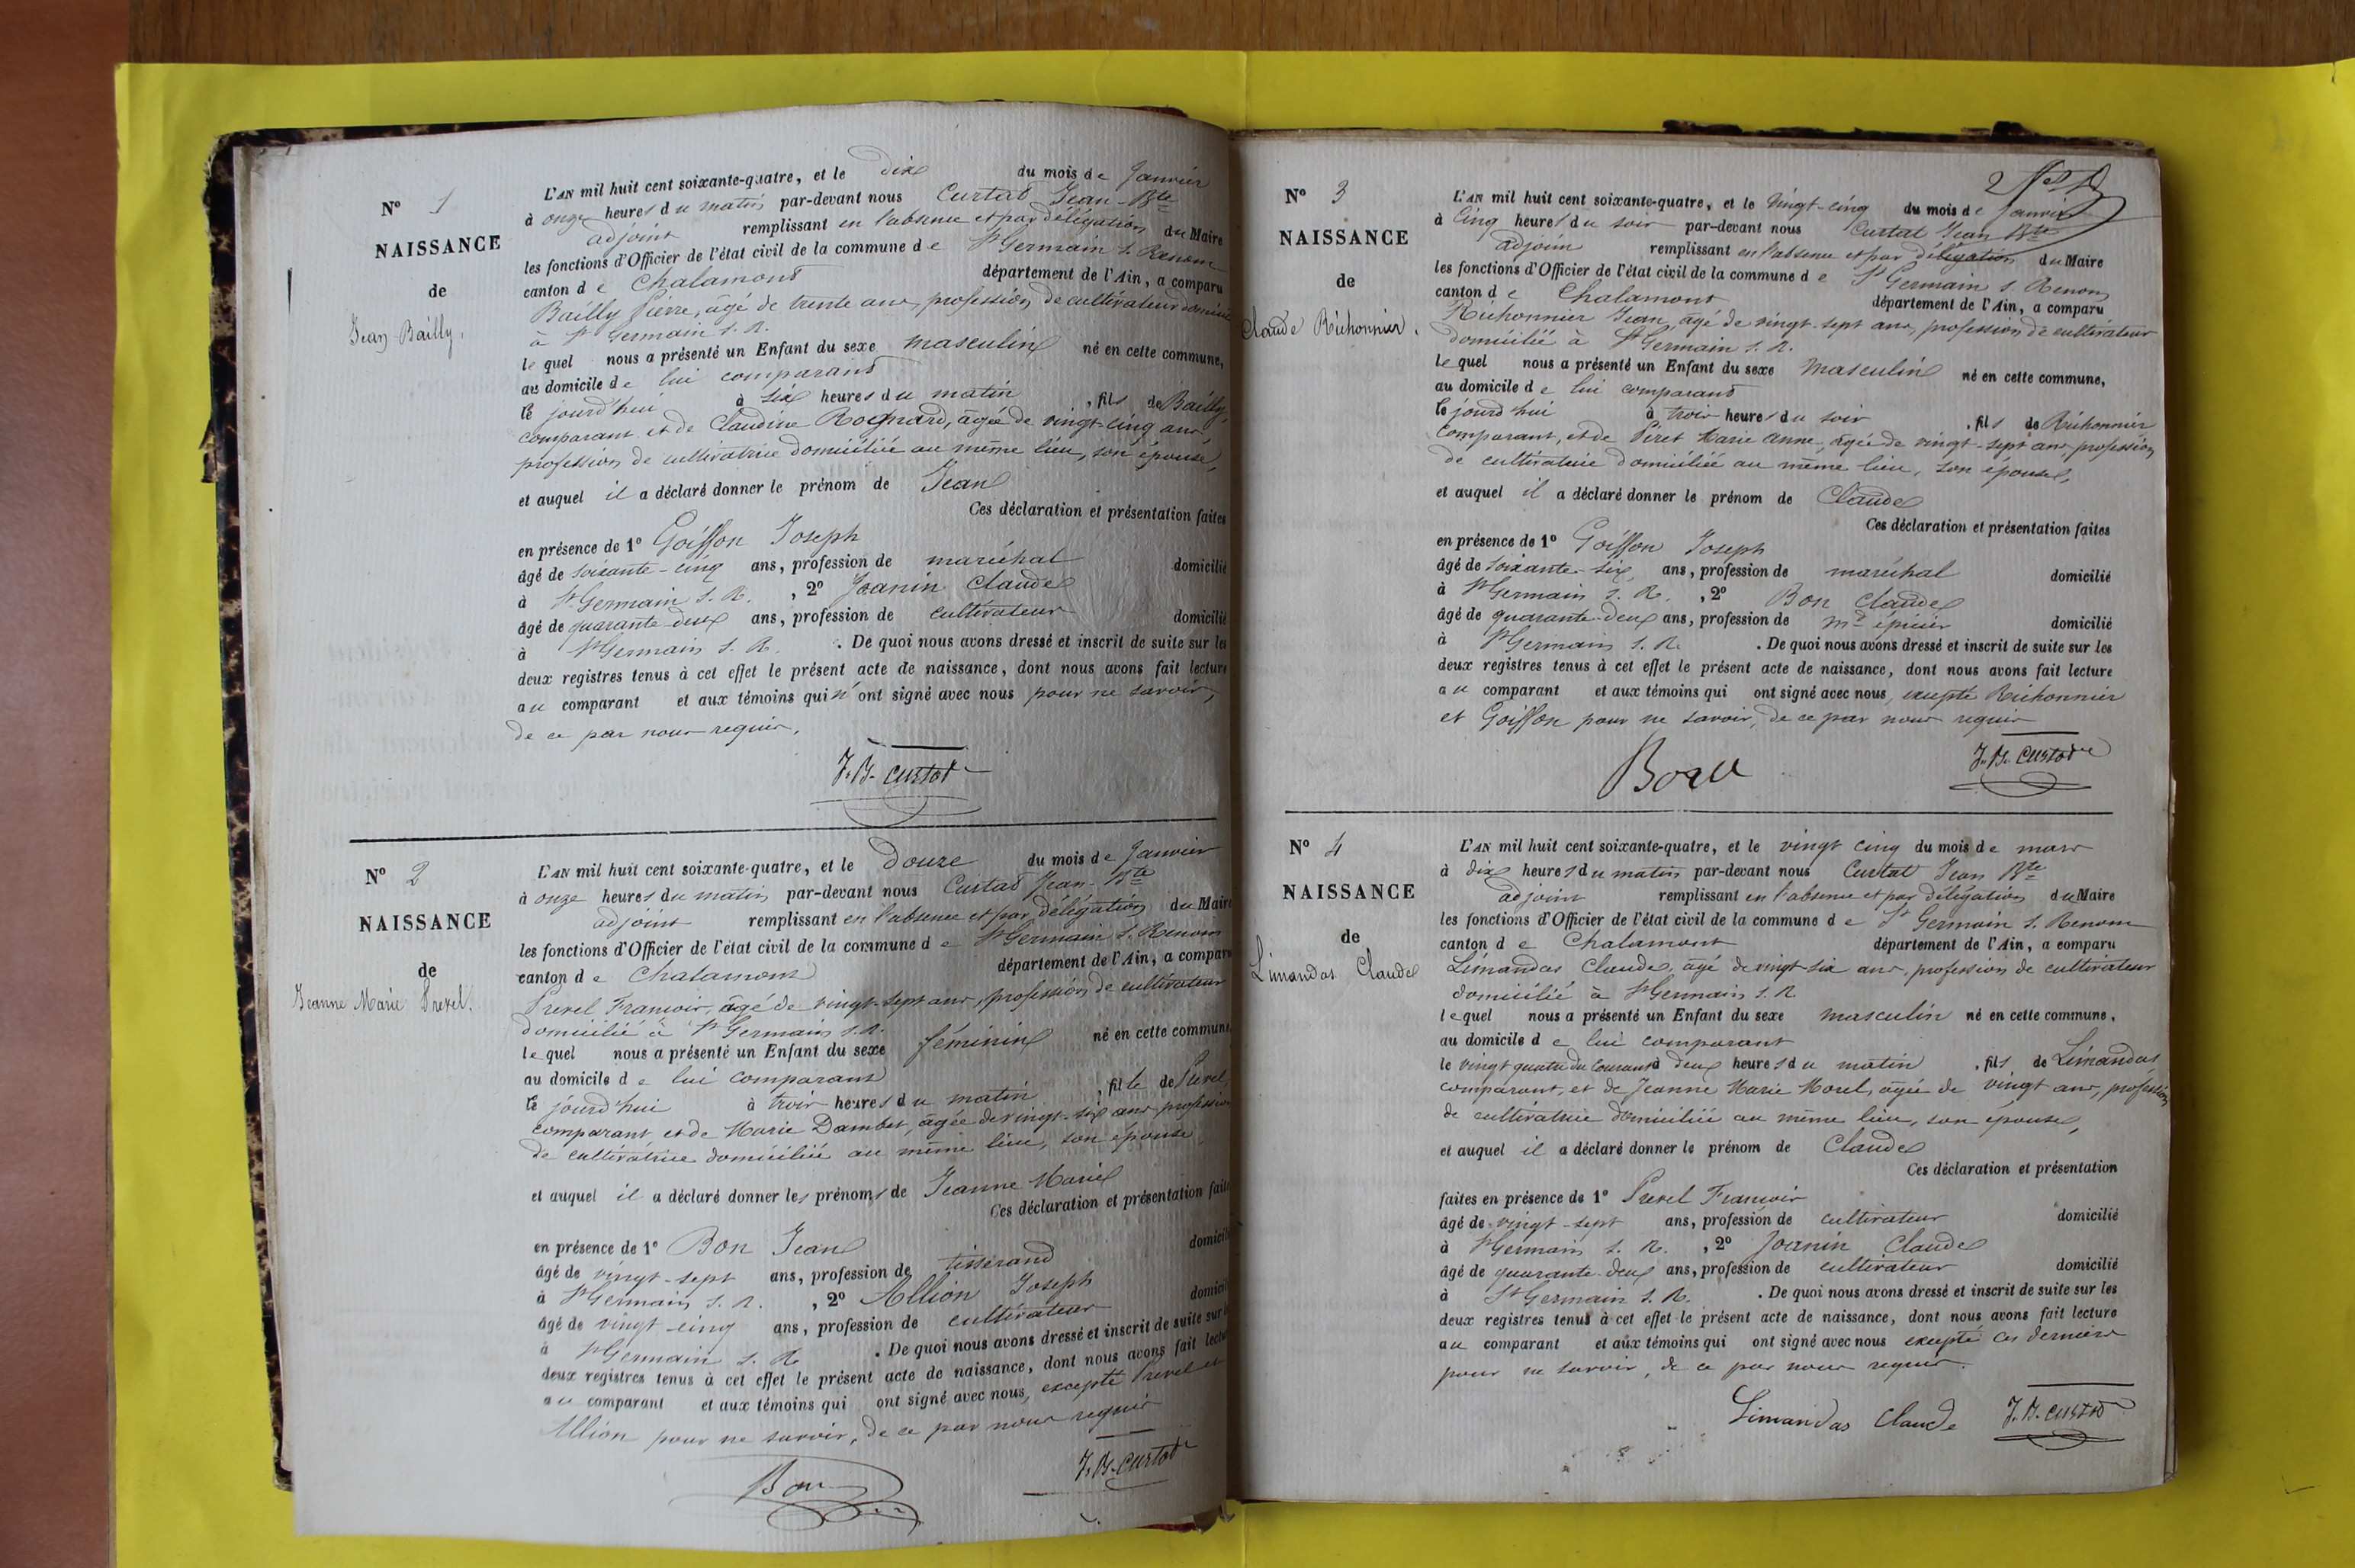 N° 1
NAISSANCE
de
Jean Bailly.
L'AN mil huit cent soixante-quatre, et le dix du mois de Janvier
à onze heures du matin par-devant nous Curtat Jean-Bte
adjoint remplissant en l'absence et par délégation du Maire
les fonctions d'Officier de l'état civil de la commune de St Germain s. Renom
canton de Chalamont département de l'Ain, a comparu
Bailly Pierre, âgé de trente ans, profession de cultivateur domicilié
à St Germain s. R.
lequel nous a présenté un Enfant du sexe masculin né en cette commune,
au domicile de lui comparant
le jourd'hui à six heures du matin, fils de Bailly,
comparant et de Claudine Rognard, âgée de vingt-cinq ans,
profession de cultivatrice domiciliée au même lieu, son épouse,
et auquel il a déclaré donner le prénom de Jean
Ces déclaration et présentation faites
en présence de 1° Goiffon Joseph
âgé de soixante-cinq ans, profession de maréchal domicilié
à St Germain s. R., 2° Joanin Claude
âgé de quarante-deux ans, profession de cultivateur domicilié
à St Germain s. R. . De quoi nous avons dressé et inscrit de suite sur les
deux registres tenus à cet effet le présent acte de naissance, dont nous avons fait lecture
au comparant et aux témoins qui n'ont signé avec nous pour ne savoir,
de ce par nous requis.
J.B. Curtat
N° 2
NAISSANCE
de
Jeanne Marie Prevel.
L'AN mil huit cent soixante-quatre, et le douze du mois de Janvier
à onze heures du matin par-devant nous Curtat Jean-Bte
adjoint remplissant en l'absence et par délégation du Maire
les fonctions d'Officier de l'état civil de la commune de St Germain s. Renom
canton de Chalamont département de l'Ain, a comparu
Prevel François, âgé de vingt-sept ans, profession de cultivateur
domicilié à St Germain s. R.
lequel nous a présenté un Enfant du sexe féminin né en cette commune,
au domicile de lui comparant
le jourd'hui à trois heures du matin, fille de Prevel,
comparant, et de Marie Dambet, âgée de vingt-six ans profession
de cultivatrice domiciliée au même lieu, son épouse,
et auquel il a déclaré donner les prénoms de Jeanne Marie
Ces déclaration et présentation faites
en présence de 1° Bon Jean
âgé de vingt-sept ans, profession de tisserand domicilié
à St Germain s. R., 2° Allion Joseph
âgé de vingt-cinq ans, profession de cultivateur domicilié
à St Germain s. R. . De quoi nous avons dressé et inscrit de suite sur les
deux registres tenus à cet effet le présent acte de naissance, dont nous avons fait lecture
au comparant et aux témoins qui ont signé avec nous, excepté Prevel et
Allion pour ne savoir, de ce par nous requis
Bon J.B. Curtat
2
N° 3
NAISSANCE
de
Claude Richonnier.
L'AN mil huit cent soixante-quatre, et le vingt-cinq du mois de Janvier
à Cinq heures du soir par-devant nous Curtat Jean Bte
adjoint remplissant en l'absence et par délégation du Maire
les fonctions d'Officier de l'état civil de la commune de St Germain s. Renom
canton de Chalamont département de l'Ain, a comparu
Richonnier Jean, âgé de vingt-sept ans, profession de cultivateur
domicilié à St Germain s. R.
lequel nous a présenté un Enfant du sexe Masculin né en cette commune,
au domicile de lui comparant
le jourd'hui à trois heures du soir, fils de Richonnier
comparant, et de Péret Marie Anne, âgée de vingt-sept ans, profession
de cultivatrice domiciliée au même lieu, son épouse,
et auquel il a déclaré donner le prénom de Claude
Ces déclaration et présentation faites
en présence de 1° Goiffon Joseph
âgé de soixante-six ans, profession de maréchal domicilié
à St Germain s. R., 2° Bon Claude
âgé de quarante-deux ans, profession de md épicier domicilié
à St Germain s. R. . De quoi nous avons dressé et inscrit de suite sur les
deux registres tenus à cet effet le présent acte de naissance, dont nous avons fait lecture
au comparant et aux témoins qui ont signé avec nous, excepté Richonnier
et Goiffon pour ne savoir, de ce par nous requis
Bon J.B. Curtat
N° 4
NAISSANCE
de
Limandas Claude
L'AN mil huit cent soixante-quatre, et le vingt cinq du mois de mars
à dix heures du matin par-devant nous Curtat Jean Bte
adjoint remplissant en l'absence et par délégation du Maire
les fonctions d'Officier de l'état civil de la commune de St Germain s. Renom
canton de Chalamont département de l'Ain, a comparu
Limandas Claude, âgé de vingt-six ans, profession de cultivateur
domicilié à St Germain s. R.
lequel nous a présenté un Enfant du sexe masculin né en cette commune,
au domicile de lui comparant
le vingt quatre du courant à deux heures du matin, fils de Limandas
comparant, et de Jeanne Marie Morel, âgée de vingt ans, profession
de cultivatrice domiciliée au même lieu, son épouse,
et auquel il a déclaré donner le prénom de Claude
Ces déclaration et présentation
faites en présence de 1° Prevel François
âgé de vingt-sept ans, profession de cultivateur domicilié
à St Germain s. R., 2° Joanin Claude
âgé de quarante-deux ans, profession de cultivateur domicilié
à St Germain s. R. . De quoi nous avons dressé et inscrit de suite sur les
deux registres tenus à cet effet le présent acte de naissance, dont nous avons fait lecture
au comparant et aux témoins qui ont signé avec nous excepté ces derniers
pour ne savoir, de ce par nous requis.
Limandas Claude J.B. Curtat